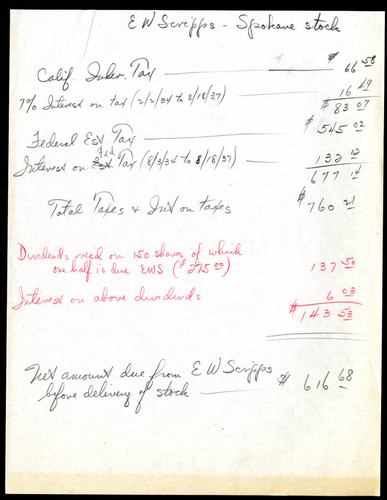 E W Scripps - Spokane stock
Calif. Inher. Tax $ 66 58
7% Interest on tax (2/2/34 to 8/18/37) 16 49
$ 83 07
Federal Est Tax $ 545 02
Interest on Fed Est Tax (8/3/34 to 8/18/37) 132 12
677 14
Total Taxes & Int on taxes $ 760 21
Dividends recd on 150 shares of which
one half is due EWS ($275 00) 137 50
Interest on above dividends 6 03
$ 143 53
Net amount due from E W Scripps
before delivery of stock $ 616 68